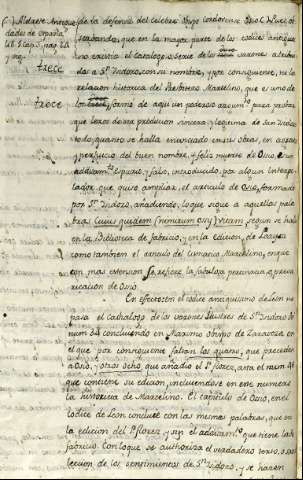 (·) Aldrete Antigue-
dades de España
lib. 1. cap. 3. pag. 22.
y sig.
trece
trece
de la defensa del celebre Obispo Cordobense
que en la mayor parte de los codices antiguos
no existia el catalogo, o serie de los trece varones atribui-
da a Sn. Isidoro, con su nombre, y por consiguiente, ni la
relacion historica del Presbitero Marcelino, que es uno de
los trece, formo de aqui un poderoso argumto. para probar
que lexos de ser produccion sincera y legitima de Sn. Isidoro
todo quanto se halla enunciado en sus obras, en agravio
y perjuicio del buen nombre, y feliz muerte de Osio, era
additamto. espurio, y falso, introducido por algun interpo-
lador que quiso ampliar el articulo de Osio, formado
por Sn. Isidoro, añadiendo, luego sigue a aquellas pala-
bras cuius quidem (nemirum Osij) vitam, segun se halla
en la Biblioteca de Fabricio, y en la edicion, de Loaysa
como tambien el articulo del Marcelino, en que
con mas extension se refiere la fabulosa pertinacia, y preva-
ricacion de Osio.
En efecto: en el codice antiquisimo de Leon em-
pieza el cathalogo de los varones ilustres de Sn. Isidoro
concluyendo en Maximo obispo de Zaragoza, en
el que por consiguiente faltan los quatro, que preceden
a Osio, y otros ocho que añadio el Pe. Florez, ante el num. 4
que contiene su edicion, incluyendose en este numero
la historia de Marcelino. El capitulo de Osio, en el
codice de Leon concluye con las mismas palabras, que en
la edicion del Pe. Florez, y sin el additamto. que tiene la de
Fabricio. Con lo que se authoriza el verdadero texto, o co-
leccion de los sentimientos de Sn. Isidoro, y se hacen